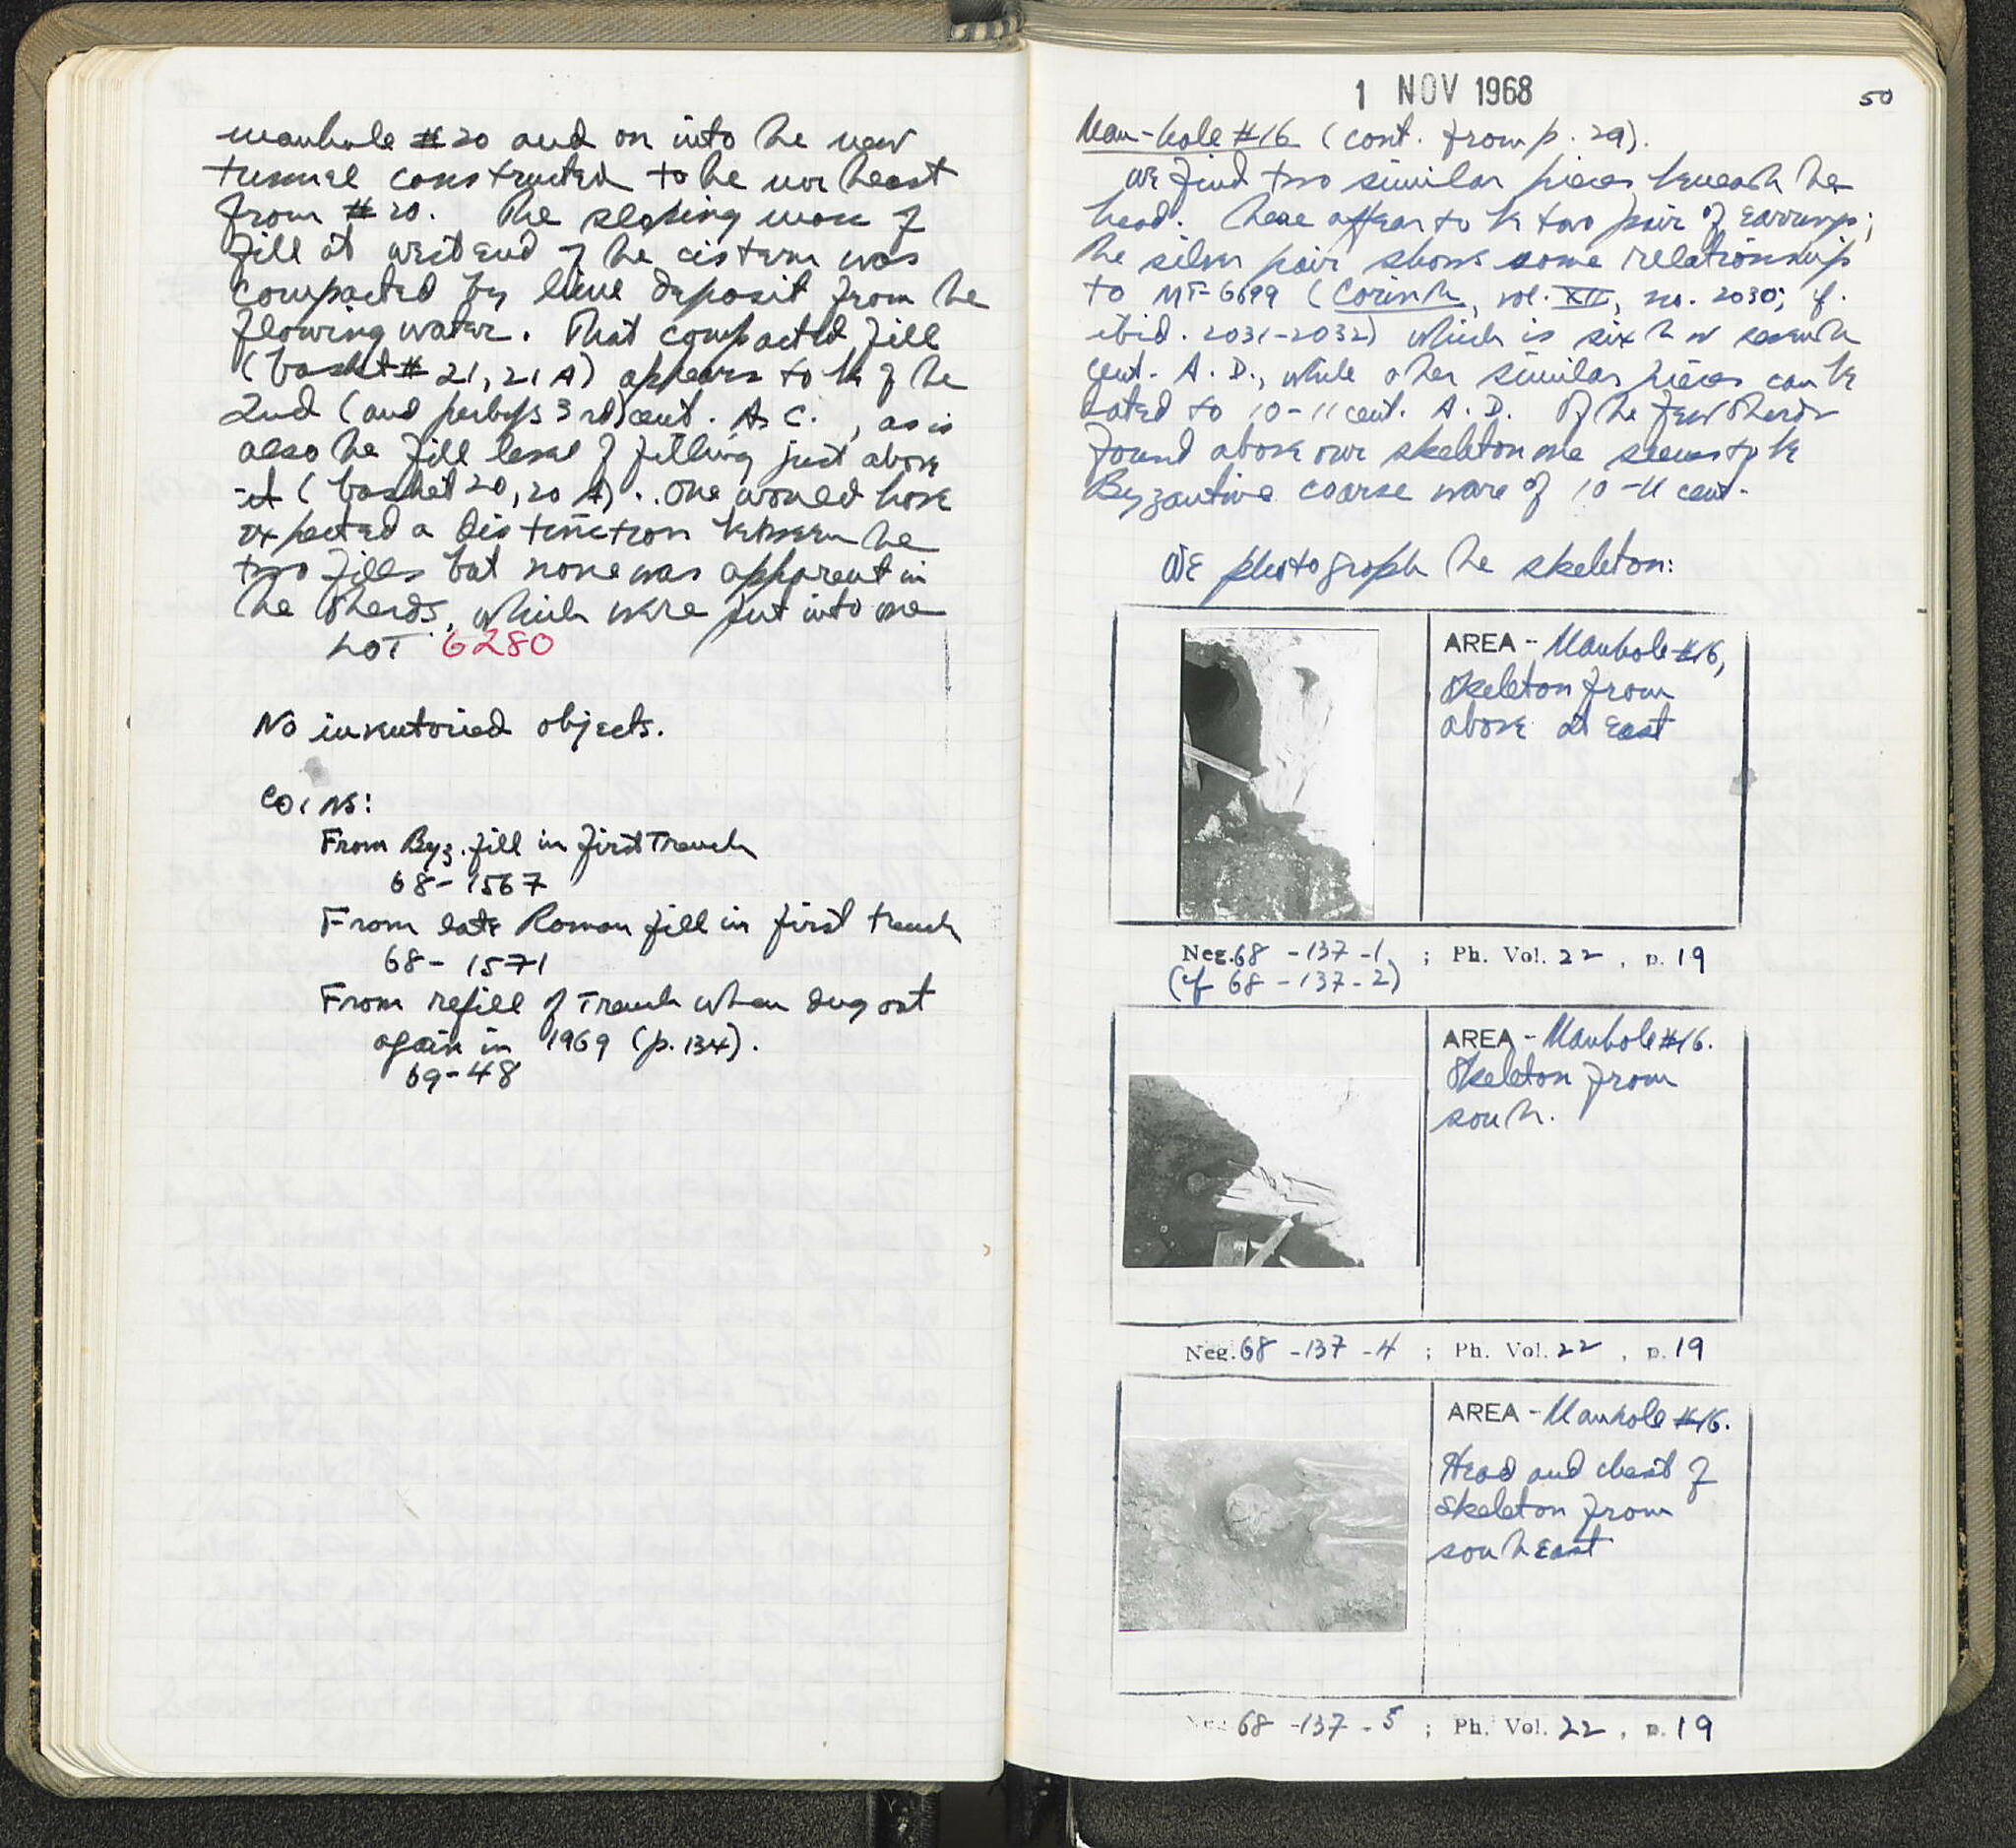 manhole #20 and on into the new
tunnel constructed to the northeast
from #20. The sloping mass of
fill at west end of the cistern was
compacted by lime deposit from the
flowing water. That compacted fill
(basket # 21, 21A) appears to be of the
2nd (and perhaps 3rd) cent. A.C., as is
also the fill level of filling just above
it (basket 20, 20 A). One would have
expected a distinction between the
two fills but none was apparent in
the sherds, which were put into one
LOT 6280
No inventoried objects.
COINS:
From Byz. fill in first Trench
68-1567
From late Roman fill in first trench
68-1571
From refill of Trench when dug out
again in 1969 (p. 134).
69-48
1 NOV 1968
50
Man-hole #16 (cont. from p. 29).
We find two similar pieces beneath the
head. These appear to be two pair of earrings;
the silver pair shows some relationship
to MF-6699 (Corinth, vol. XII, no. 2030; cf.
ibid. 2031-2032) which is sixth or seventh
cent. A.D., while other similar pieces can be
dated to 10-11 cent. A.D. Of the few sherds
found above our skeleton one seems to be
Byzantine coarse ware of 10-11 cent.
We photograph the skeleton:
AREA - Manhole #16,
Skeleton from
above at East
Neg. 68-137-1 ; Ph. Vol. 22, p. 19
(cf 68-137-2)
AREA - Manhole #16.
Skeleton from
south.
Neg. 68-137-4 ; Ph. Vol. 22, p. 19
AREA - Manhole #16.
Head and chest of
skeleton from
southeast
Neg. 68-137-5 ; Ph. Vol. 22, p. 19